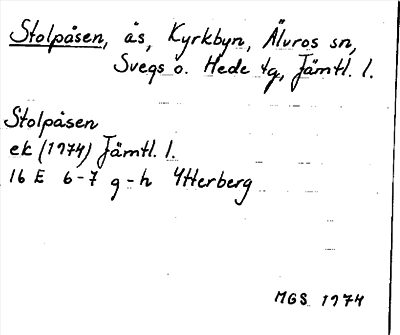 Stolpåsen, ås, Kyrkbyn, Älvros sn,
Svegs o. Hede tg, Jämtl. l.
Stolpåsen
ek (1974) Jämtl. l.
16 E 6-7 g-h Ytterberg
MGS 1974